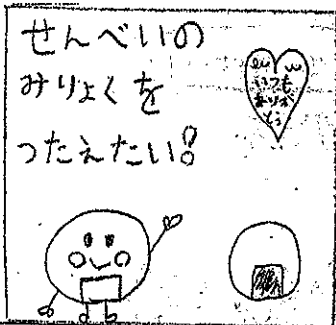 せんべいの
みりょくを
つたえたい!
いつも
ありが
とう